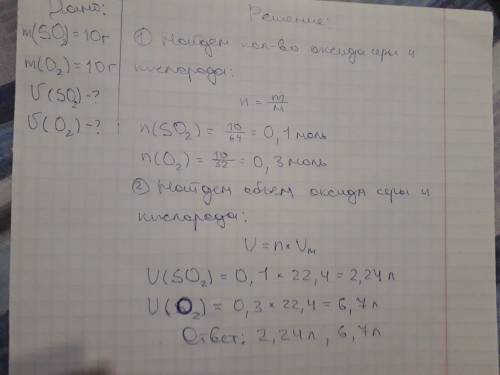 Дано:
m(SO₂)=10г
m(O₂)=10г
V(SO₂)-?
V(O₂)-?
Решение:
① Найдем кол-во оксида серы и
кислорода:
n = m/M
n(SO₂) = 10/64 = 0,1 моль
n(O₂) = 10/32 = 0,3 моль
② Найдем объем оксида серы и
кислорода:
V = n × Vм
V(SO₂) = 0,1 × 22,4 = 2,24л
V(O₂) = 0,3 × 22,4 = 6,7л
Ответ: 2,24л, 6,7л